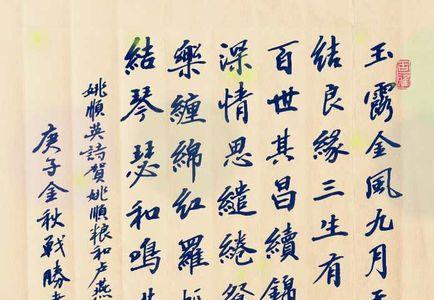 玉露金風九月
結良緣三生有
百世其昌續錦
深情思繾綣
樂纏綿紅羅
結琴瑟和鳴
姚順英詩賀姚順粮和卢燕
庚子金秋戰勝